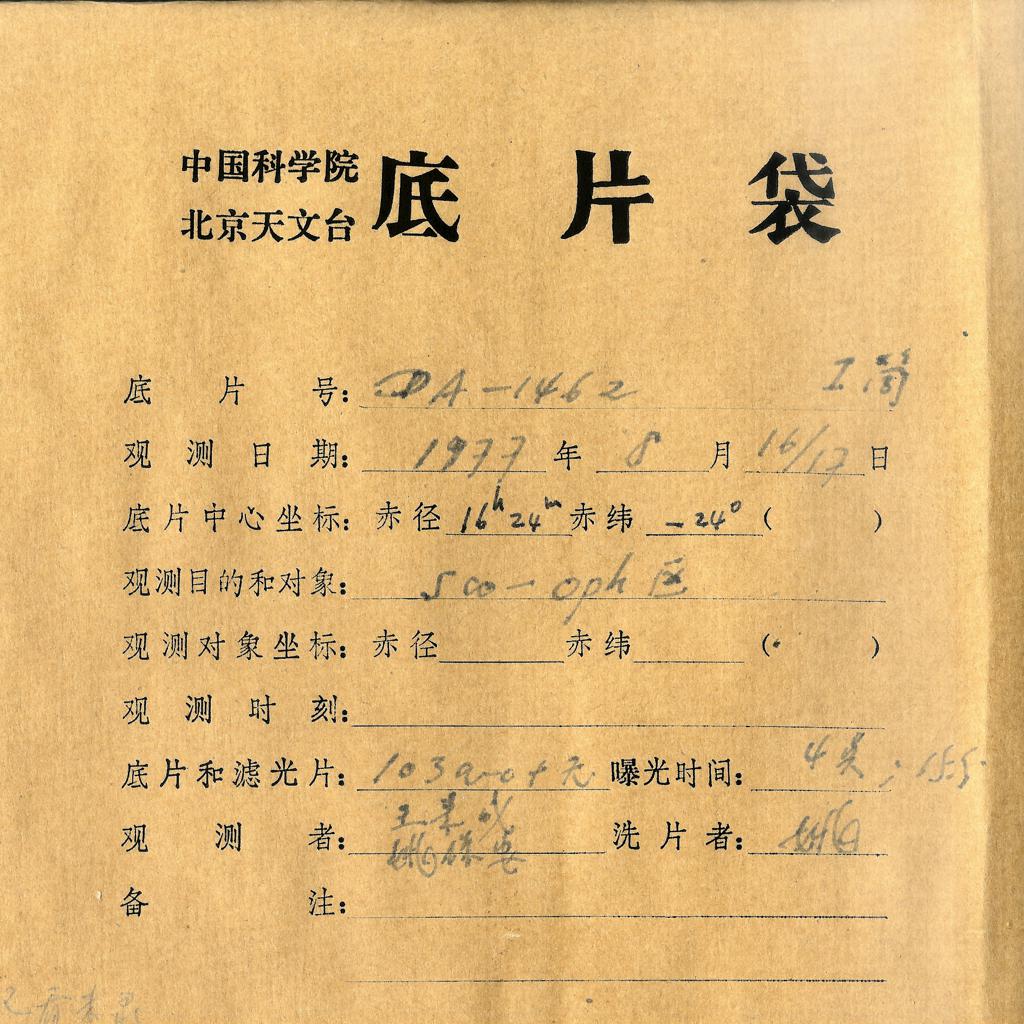 中国科学院
北京天文台
底片袋
底片号: DA-1462 I筒
观测日期: 1977年8月16/17日
底片中心坐标: 赤径 16h24m 赤纬 -24° ( )
观测目的和对象: Sco-oph 区
观测对象坐标: 赤径 赤纬 ( )
观测时刻:
底片和滤光片: 103a-o+无 曝光时间: 4
观测者: 洗片者: 姚
备注: